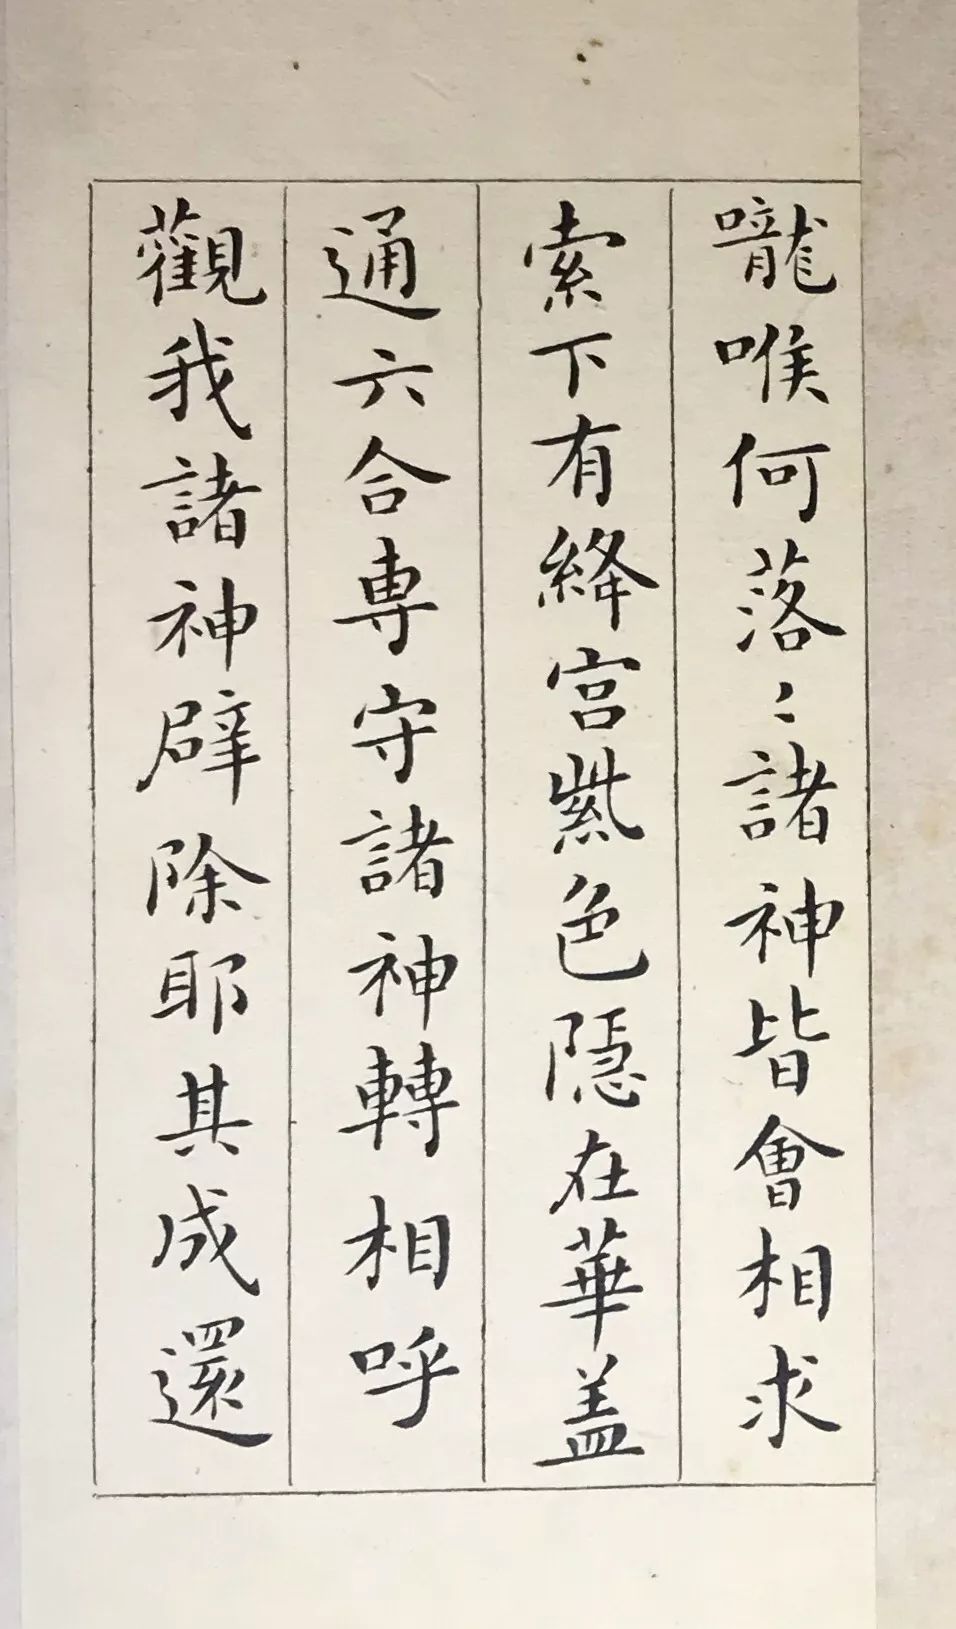 嚨喉何落〻諸神皆會相求
索下有絳宮紫色隱在華盖
通六合専守諸神轉相呼
觀我諸神辟除耶其成還